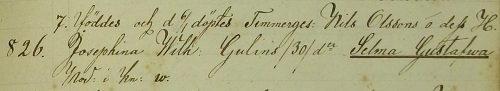 7. föddes och d 9 döptes Timmerges: Nils Olssons o dess H.
826. Josephina With: Gulins /30/ der Selma Gustafwa
i Kn: w.